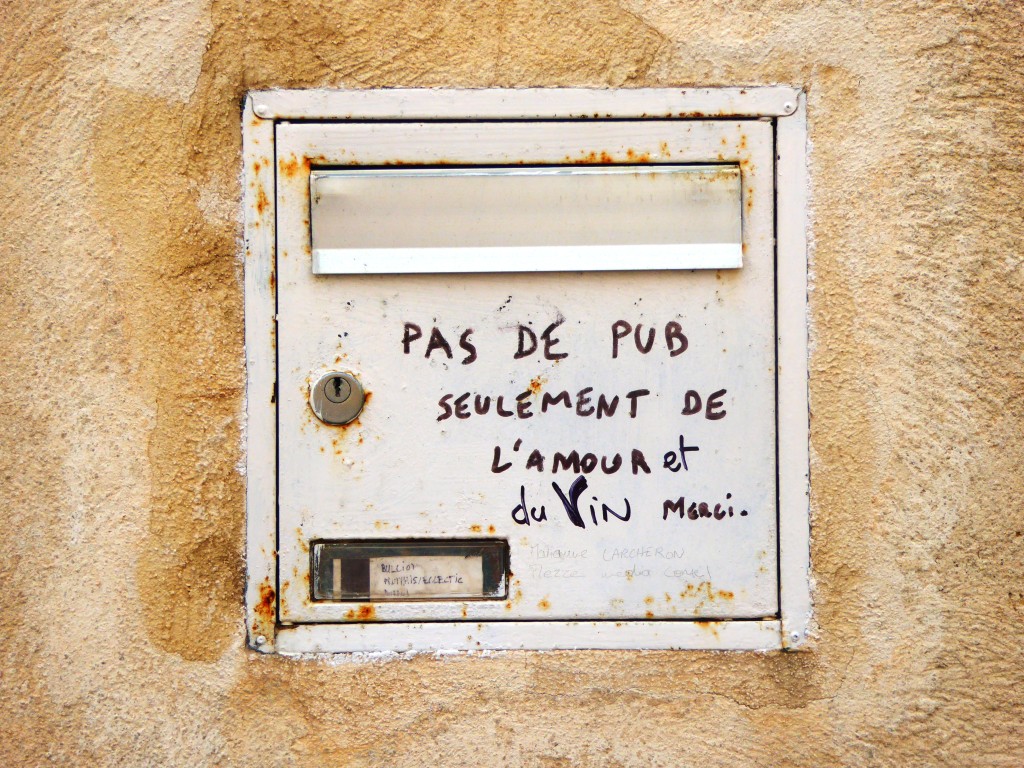 PAS DE PUB
SEULEMENT DE
L'AMOUR et
du VIN MERCI.
LARCHERON